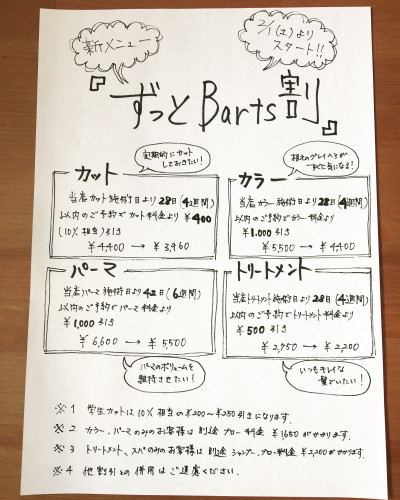 新メニュー
2/1(土)より
スタート!!
『ずっとBarts割』
定期的にカット
しておきたい!
カット
当店カット施術日より28日(4週間)
以内のご予約でカット料金より¥400
(10%相当)引き
¥4,400 → ¥3,960
根元のグレイヘアが
すぐに気になる!
カラー
当店カラー施術日より28日(4週間)
以内のご予約でカラー料金より
¥1,000引き
¥5,500 → ¥4,400
パーマ
当店パーマ施術日より42日(6週間)
以内のご予約でパーマ料金より
¥1,000引き
¥6,600 → ¥5,500
パーマのボリュームを
維持させたい!
トリートメント
当店トリートメント施術日より28日(4週間)
以内のご予約でトリートメント料金より
¥500引き
¥2,750 → ¥2,200
いつもキレイな
髪でいたい!
※1 学生カットは10%相当の¥200〜¥250引きになります。
※2 カラー、パーマのみのお客様は別途ブロー料金¥1650がかかります。
※3 トリートメント、スパのみのお客様は別途シャンプー、ブロー料金¥2,200がかかります。
※4 他割引との併用はご遠慮ください。